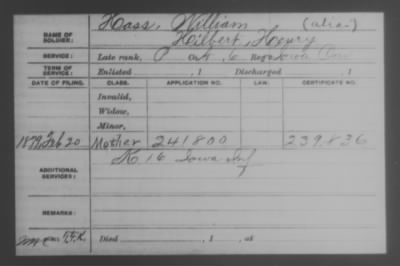 Hass, William (alias)
NAME OF SOLDIER: Hilbert, Henry
SERVICE: Late rank, P Co. A, 6 Reg't Iowa Cav
TERM OF SERVICE: Enlisted , 1 Discharged , 1
DATE OF FILING. CLASS. APPLICATION NO. LAW. CERTIFICATE NO.
Invalid,
Widow,
Minor,
1879 Feb 20 Mother 241800 239.836
K 16 Iowa Inf
ADDITIONAL SERVICES:
REMARKS:
Died , 1 , at